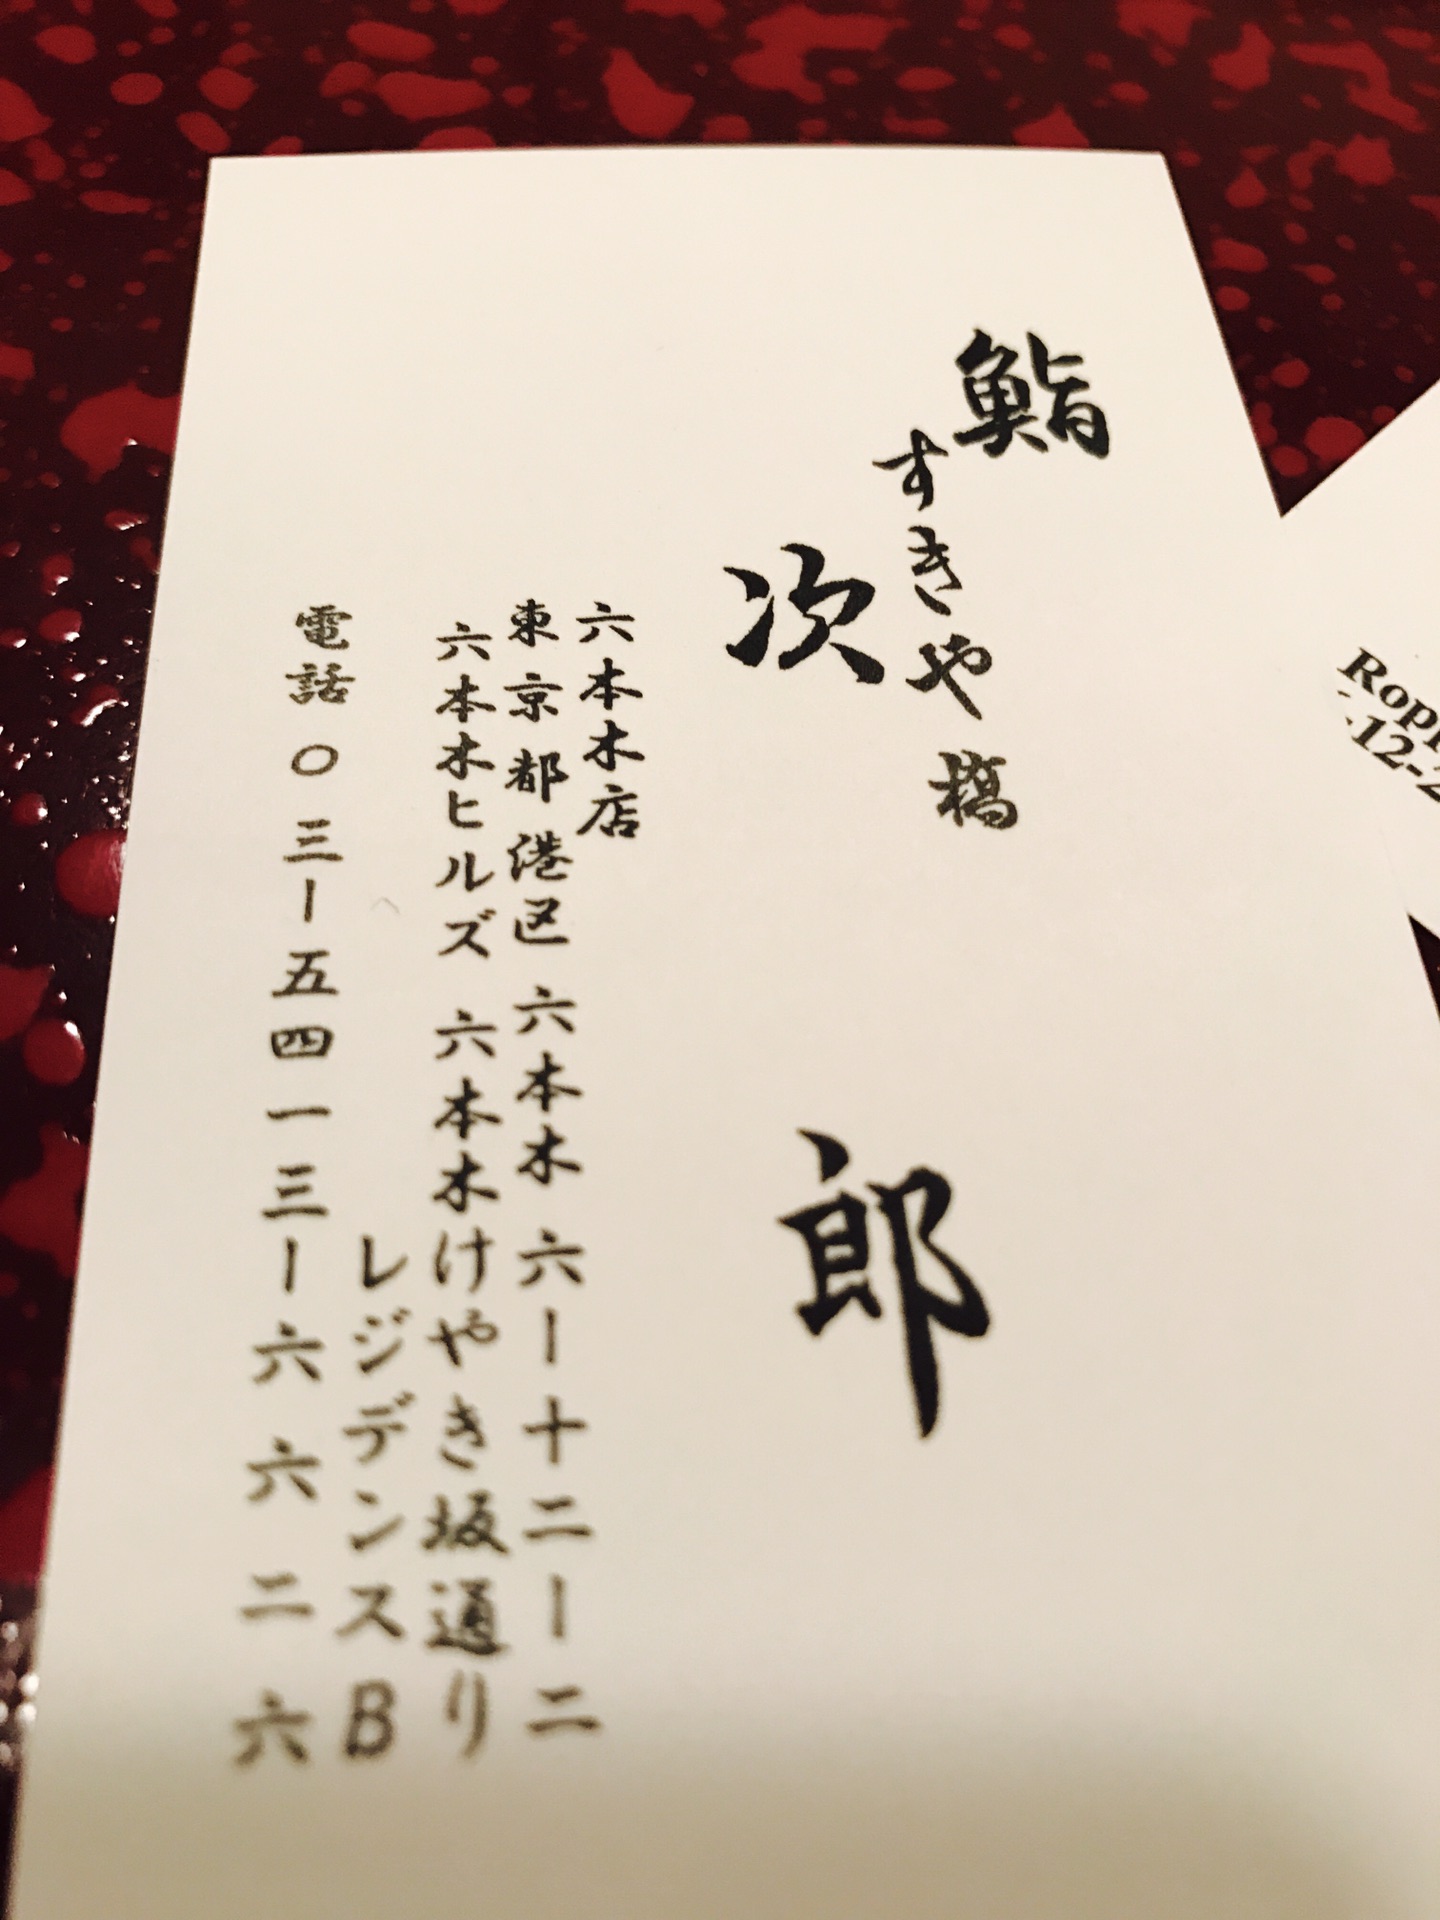 鮨
すきや橋
次郎
六本木店
東京都港区 六本木 六ー十二ー二
六本木ヒルズ 六本木けやき坂通り
レジデンスB
電話 〇三ー五四一三ー六六二六